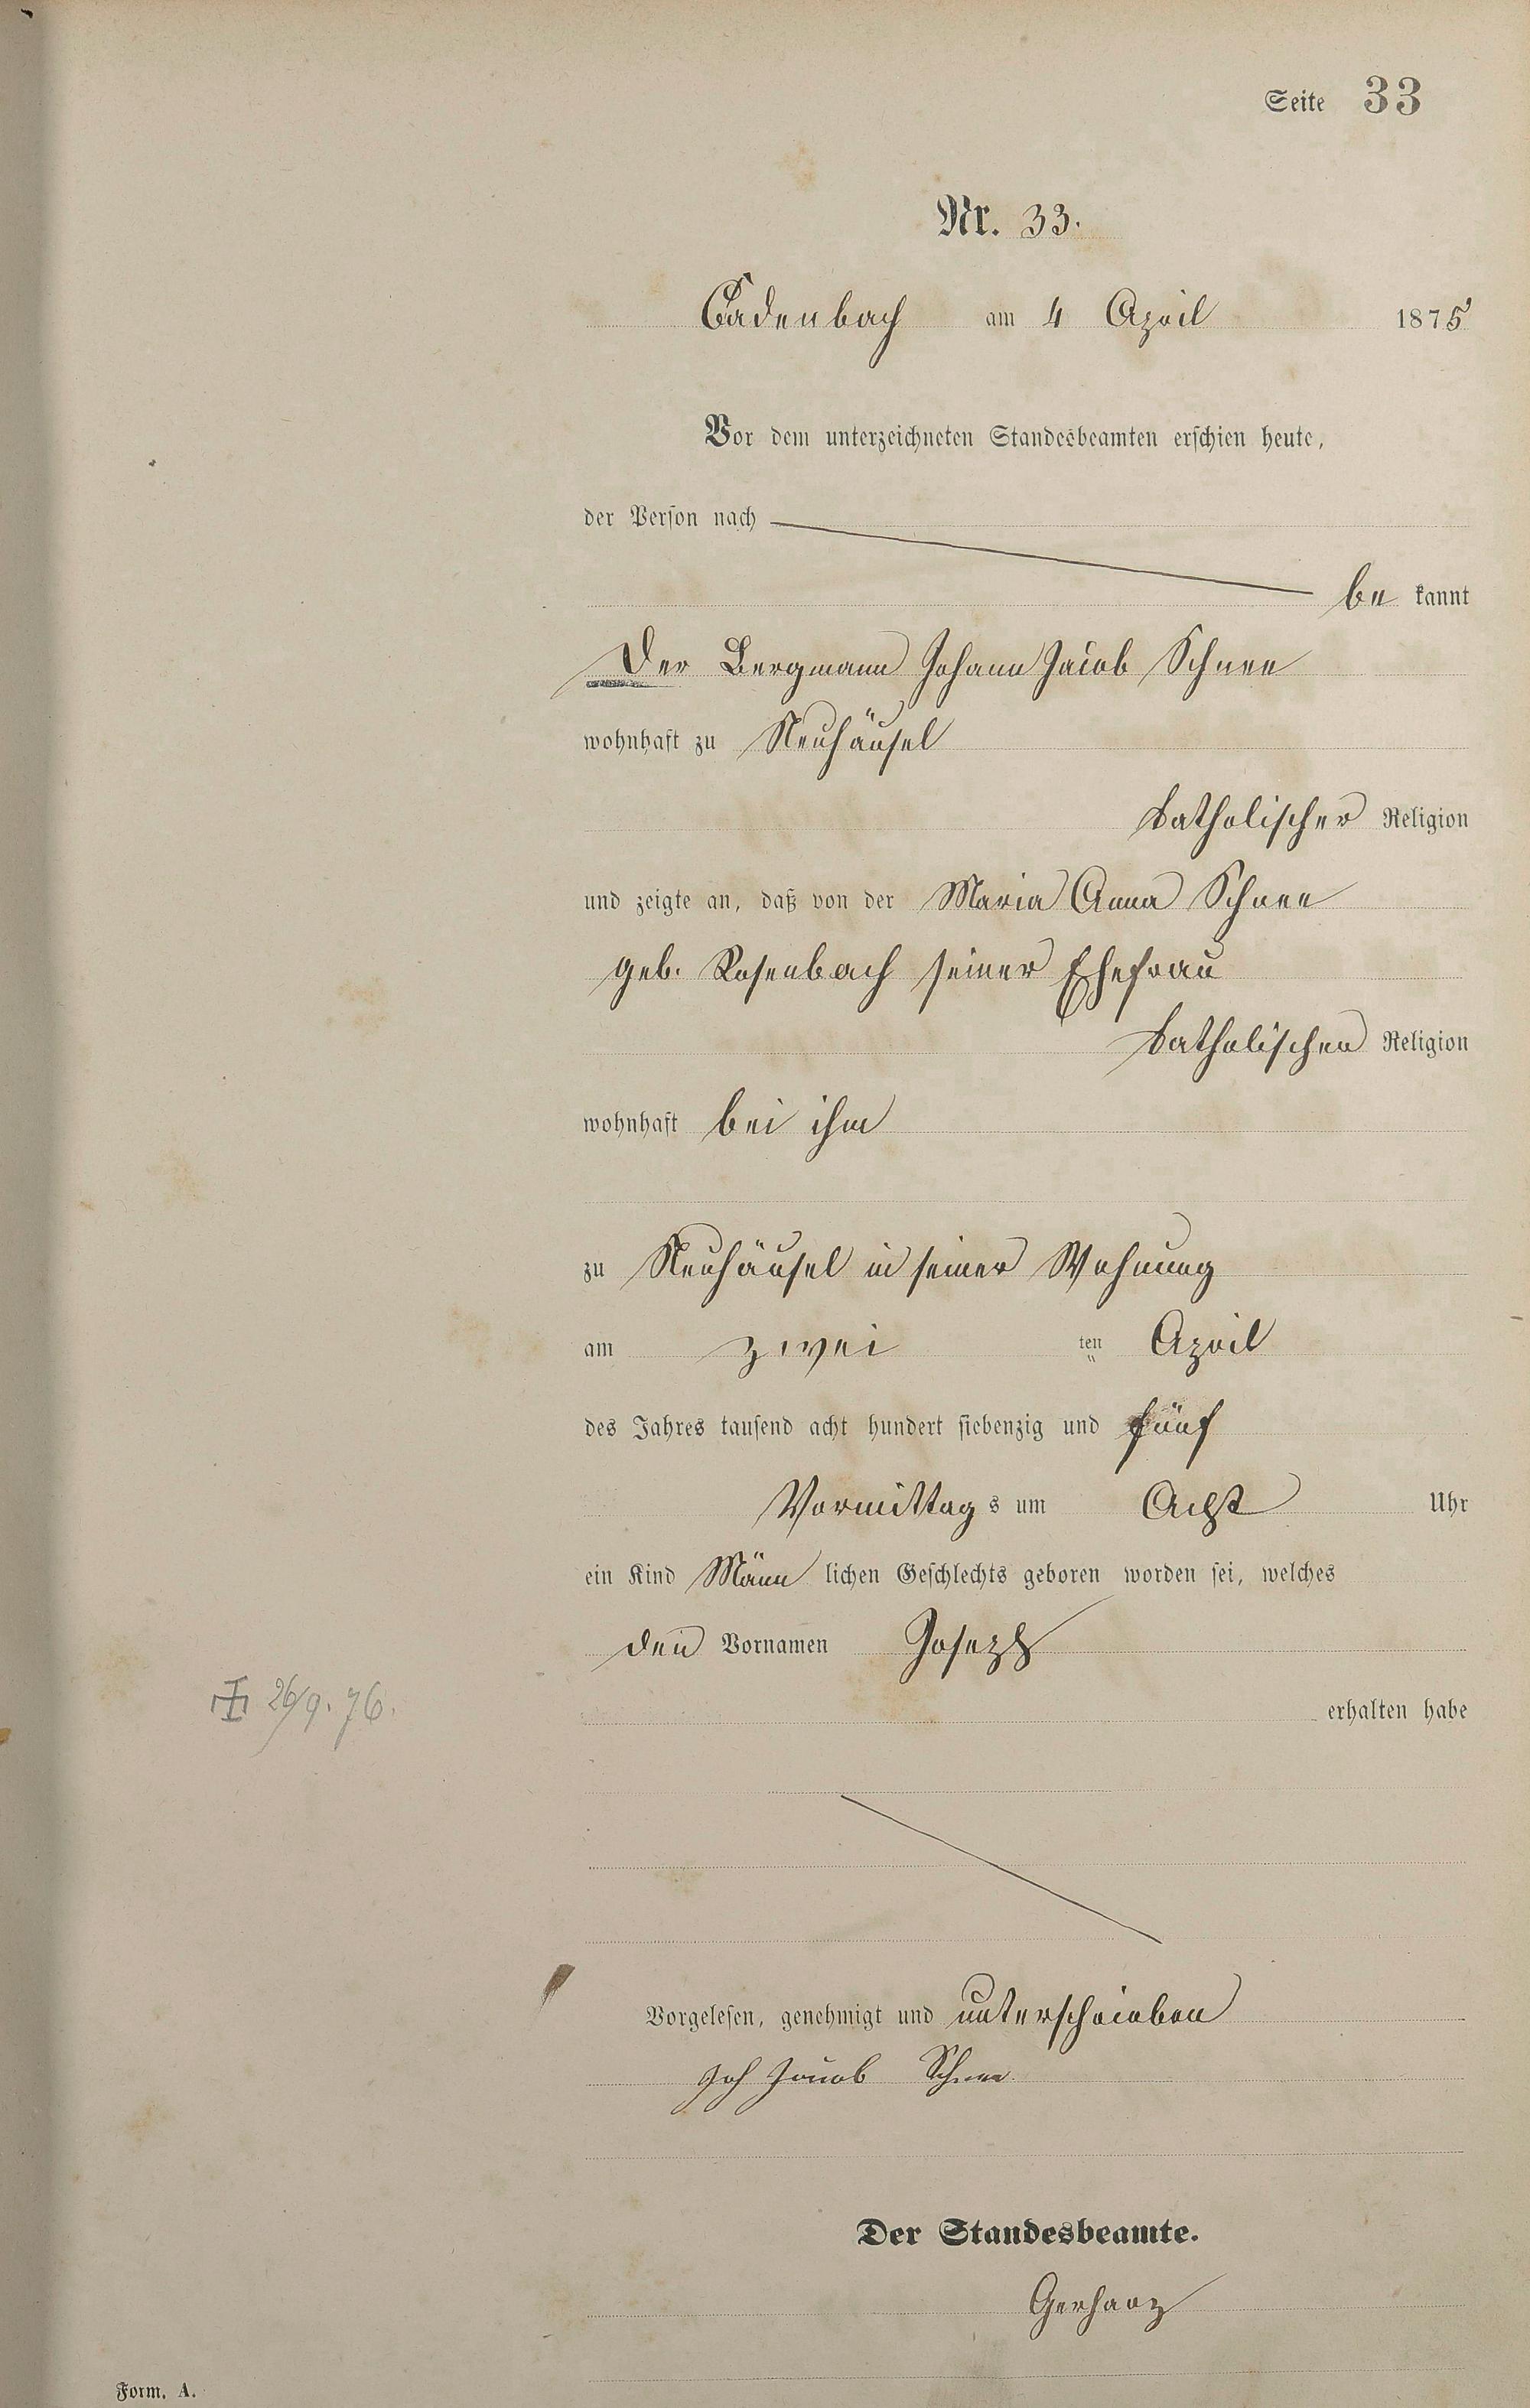 Seite 33
Nr. 33.
Cadenbach am 4 April 1875
Vor dem unterzeichneten Standesbeamten erschien heute,
der Person nach
be kannt
Der Bergmann Johann Jacob Schnee
wohnhaft zu Neuhäusel
katholischer Religion
und zeigte an, daß von der Maria Anna Schnee
geb. Rosenbach seiner Ehefrau
katholischen Religion
wohnhaft bei ihm
zu Neuhäusel in seiner Wohnung
am zwei ten April
des Jahres tausend acht hundert siebenzig und fünf
Vormittag s um Acht Uhr
ein Kind Männ lichen Geschlechts geboren worden sei, welches
den Vornamen Joseph
26/9. 76.
erhalten habe
Vorgelesen, genehmigt und unterschrieben
Joh Jacob Schnee
Der Standesbeamte.
Gerharz
Form. A.